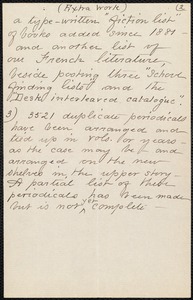 (Extra work) (3
a type-written "fiction list"
of books added since 1891 -
and another list of
our French literature,
beside posting three "School
finding lists" and the
"Desk interleaved catalogue".
3) 3521 duplicate periodicals
have been arranged and
tied up in vols. for years -
as the case may be - and
arranged on the new
shelves in the upper story -
A partial list of these
periodicals has been made
but is not yet complete -